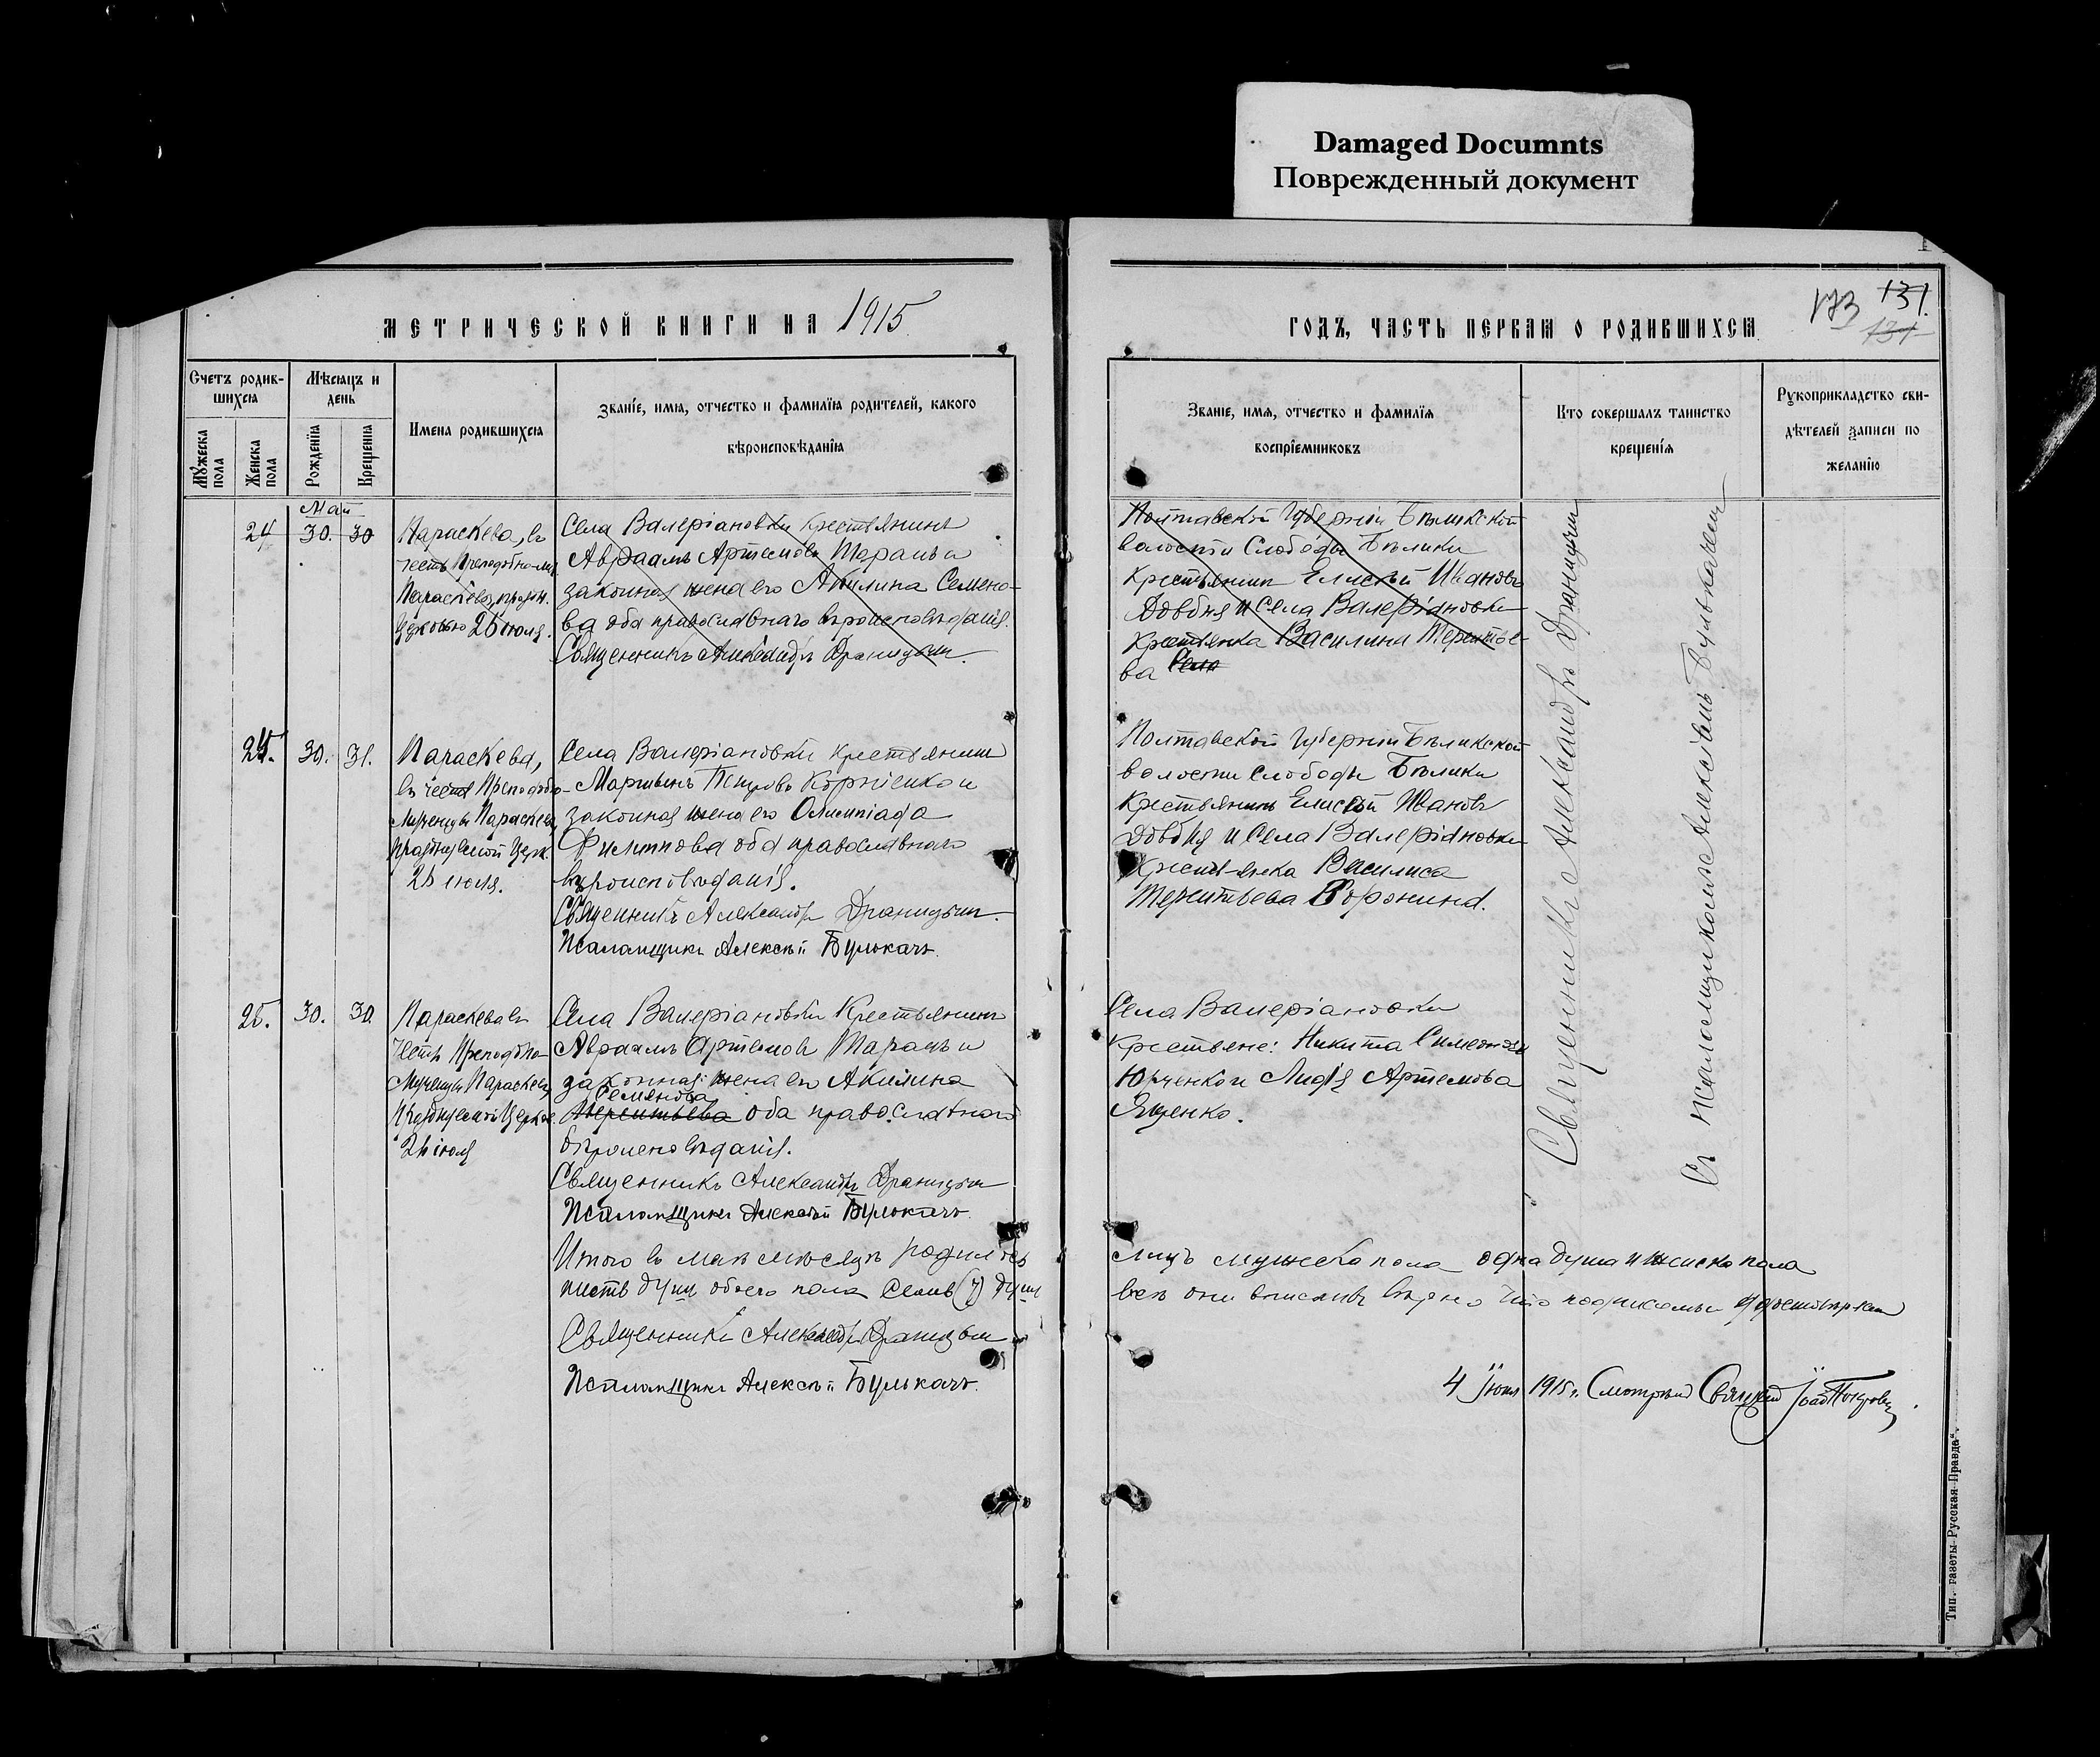 Damaged Documnts
Поврежденный документ
МЕТРИЧЕСКОЙ КНИГИ НА 1915
Счетъ родив-
шихся
Мѣсяцъ и
день
Имена родившихся
Званіе, имя, отчество и фамилія родителей, какого
вѣроисповѣданія
Мужеска
пола
Женска
пола
Рожденія
Крещенія
Май
24 30. 30
Параскева, въ
честь Преподобно-муч.
Параскевы, праздн.
Церковью 26 юоля.
Села Валеріановки крестьянинъ
Авраамъ Артемовъ Таранъ и
законная жена его Акилина Семено-
ва оба православнаго вѣроисповѣданія.
Священникъ Александръ Драницын.
24. 30. 31.
Параскева,
въ честь Преподобно-
Мученицы Параскевы
празднуемой Церк.
26 июля.
Села Валеріановки крестьянинъ
Мартынъ Петровъ Корніенко и
законная жена его Олимпіада
Филиппова оба православнаго
вѣроисповѣданія.
Священникъ Александръ Драницын.
Псаломщикъ Алексѣй Булькачъ.
25. 30. 30.
Параскева въ
честь Преподобно-
Мученицы Параскевы,
Празднуемой Церков.
26 іюля
Села Валеріановки Крестьянинъ
Авраамъ Артемовъ Таранъ и
законная жена его Акилина
Семенова
Терентьева оба православнаго
вѣроисповѣданія.
Священникъ Александръ Драницын
Псаломщикъ Алексѣй Булькачъ.
Итого въ маѣ мѣсяцѣ родилось
шесть душъ обоего пола семь (7) душ
Священникъ Александръ Драницын
Псаломщикъ Алексѣй Булькачъ.
ГОДЪ, ЧАСТЬ ПЕРВАЯ О РОДИВШИХСЯ
173 131.
131
Званіе, имя, отчество и фамилія
воспріемниковъ
Кто совершалъ таинство
крещенія
Рукоприкладство сви-
дѣтелей записи по
желанію
Полтавской Губерніи Бѣликской
волости Слободы Бѣлики
Крестьянинъ Елисѣй Ивановъ
Довбня и Села Валеріановки
крестьянка Василина Терентье-
ва Села
Полтавской Губерніи Бѣликской
волости слободы Бѣлики
Крестьянинъ Елисѣй Ивановъ
Довбня и Села Валеріановки
Крестьянка Василиса
Терентьева
Села Валеріановки
крестьяне: Никита Симеоновъ
Юрченко и Лидія Артемова
Яценко.
Священникъ Александръ Драницын
Съ псаломщикомъ Алексѣемъ Булькачемъ
лицъ мужеска пола одна душа и женска пола
всѣ они вписаны вѣрно что подписомъ
4 Iюня 1915 г. Смотрѣлъ
Тип. газеты „Русская Правда“.